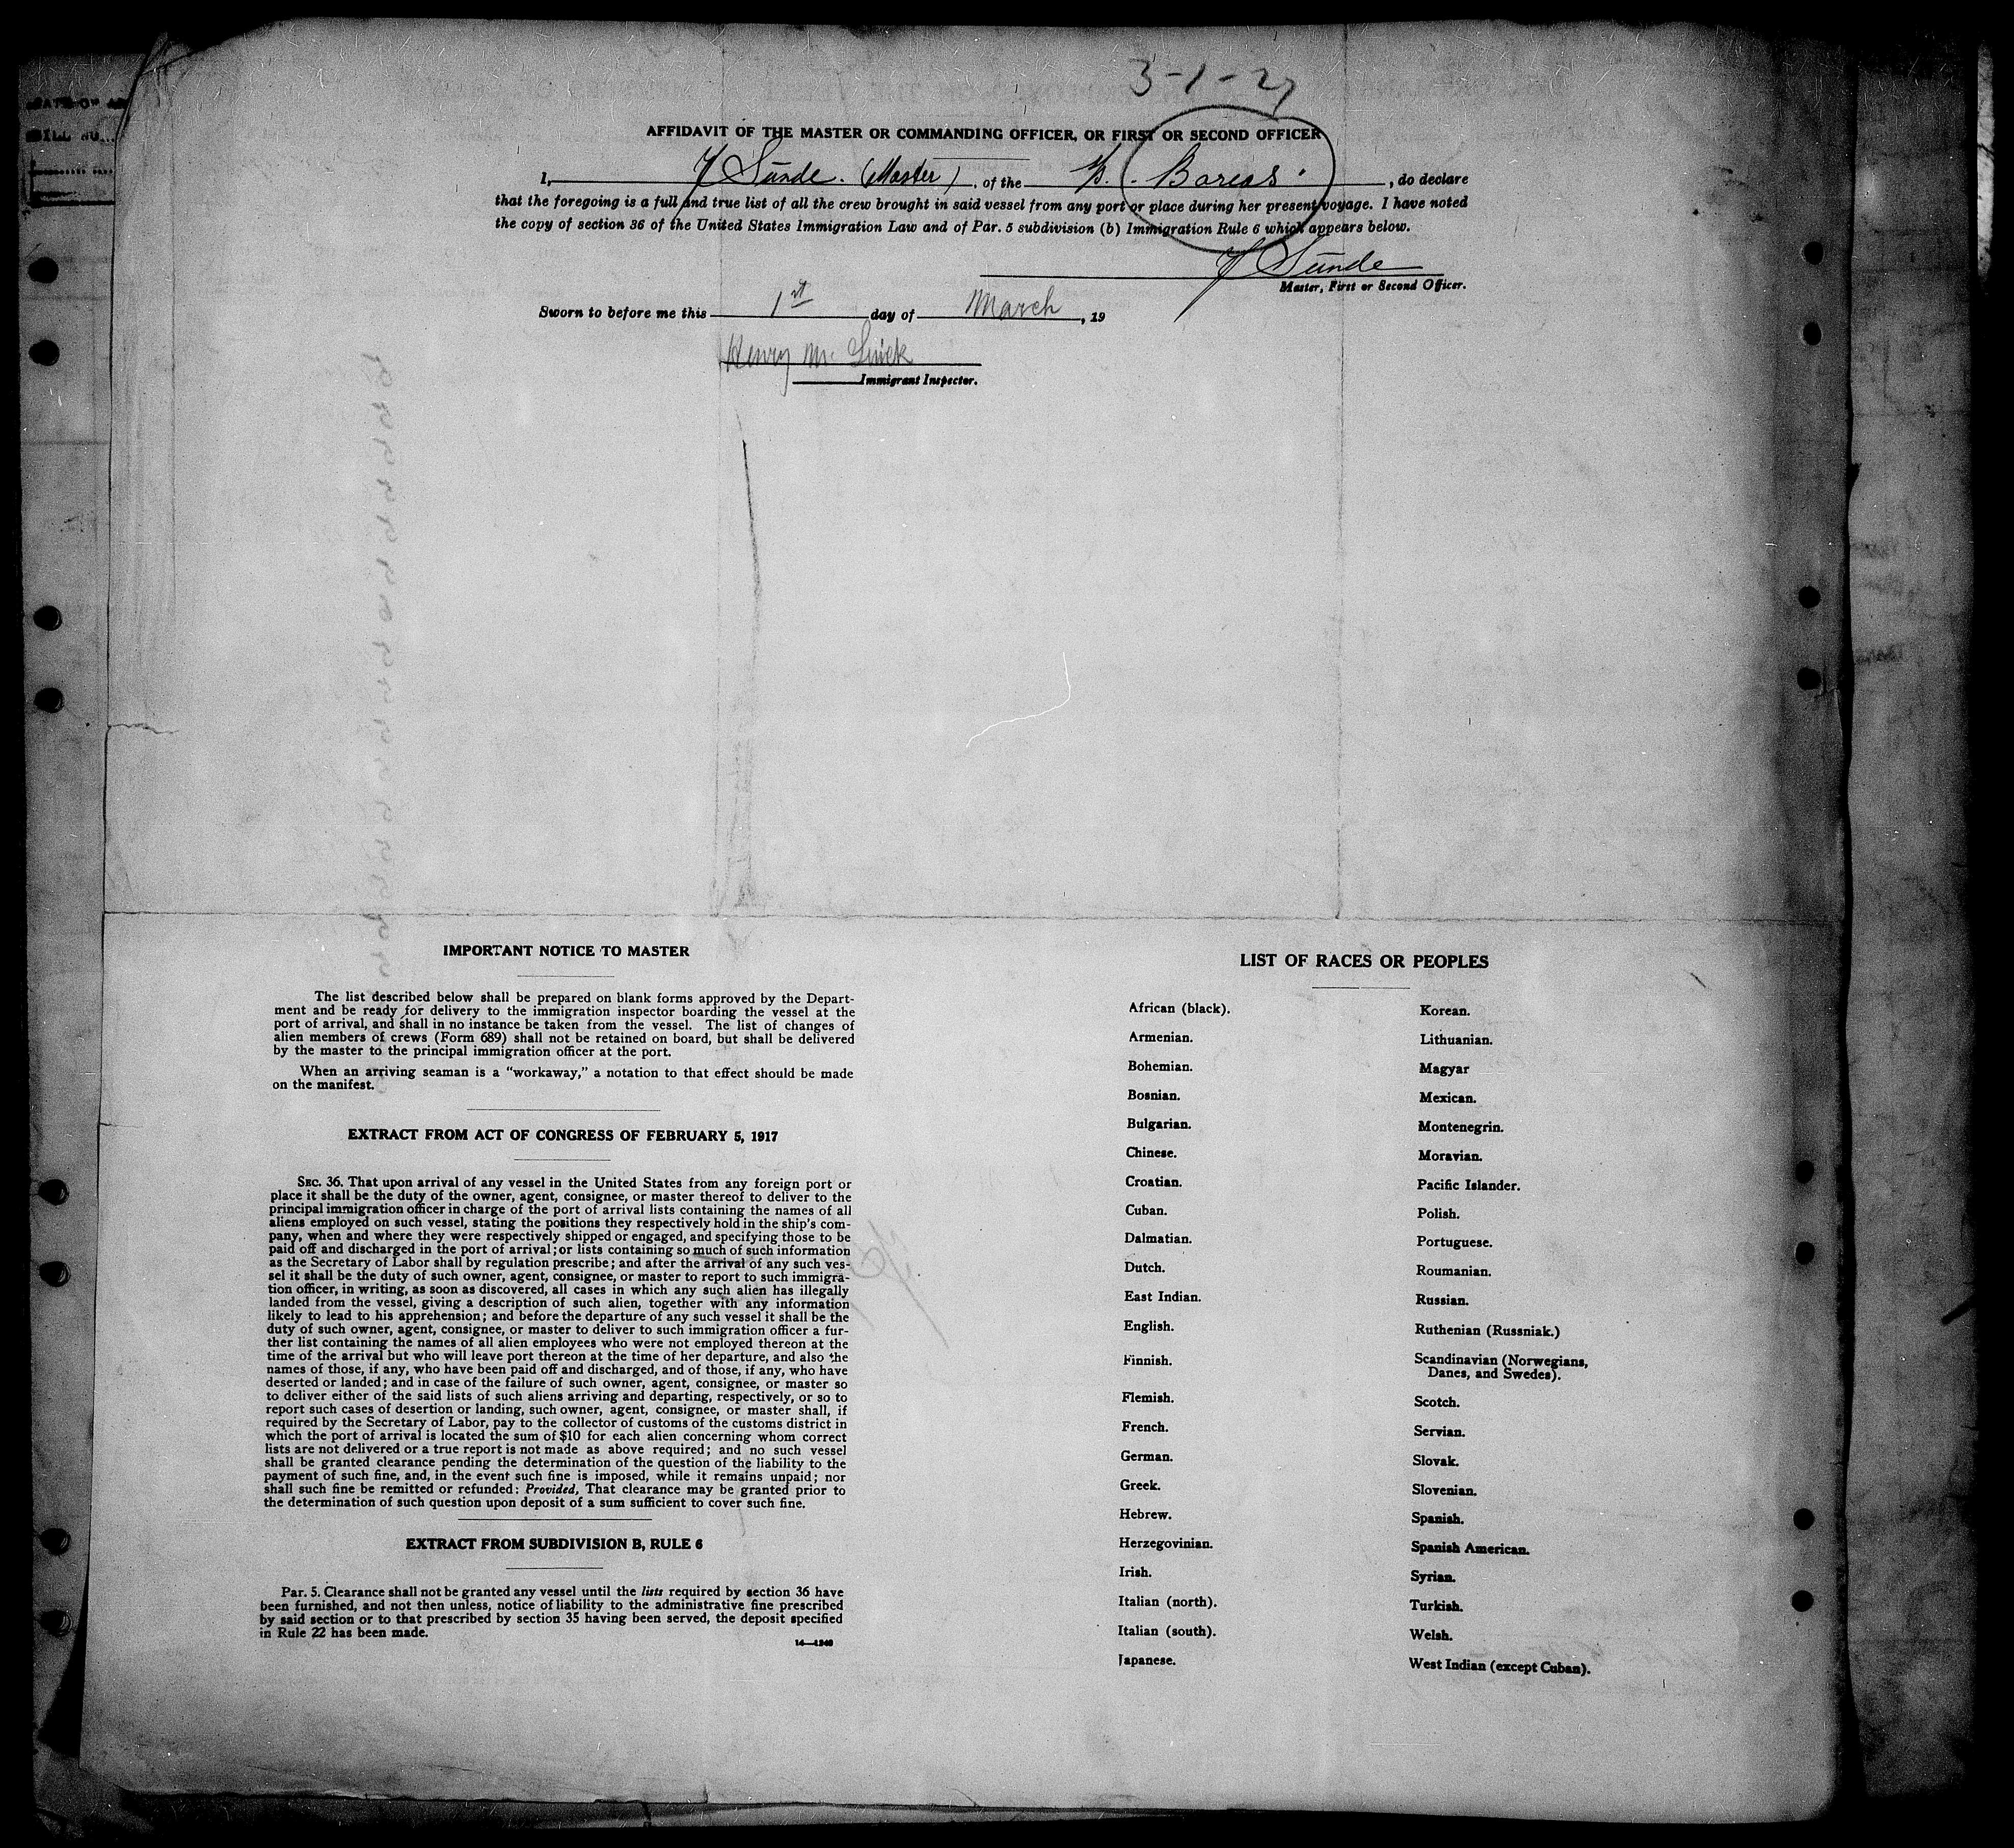 3-1-27
AFFIDAVIT OF THE MASTER OR COMMANDING OFFICER, OR FIRST OR SECOND OFFICER
I, Sunde. (Master), of the "Boreas", do declare
that the foregoing is a full and true list of all the crew brought in said vessel from any port or place during her present voyage. I have noted
the copy of section 36 of the United States Immigration Law and of Par. 5 subdivision (b) Immigration Rule 6 which appears below.
Sunde
Master, First or Second Officer.
Sworn to before me this 1st day of March, 19
Henry
Immigrant Inspector.
IMPORTANT NOTICE TO MASTER
The list described below shall be prepared on blank forms approved by the Depart-
ment and be ready for delivery to the immigration inspector boarding the vessel at the
port of arrival, and shall in no instance be taken from the vessel. The list of changes of
alien members of crews (Form 689) shall not be retained on board, but shall be delivered
by the master to the principal immigration officer at the port.
When an arriving seaman is a "workaway," a notation to that effect should be made
on the manifest.
EXTRACT FROM ACT OF CONGRESS OF FEBRUARY 5, 1917
SEC. 36. That upon arrival of any vessel in the United States from any foreign port or
place it shall be the duty of the owner, agent, consignee, or master thereof to deliver to the
principal immigration officer in charge of the port of arrival lists containing the names of all
aliens employed on such vessel, stating the positions they respectively hold in the ship's com-
pany, when and where they were respectively shipped or engaged, and specifying those to be
paid off and discharged in the port of arrival; or lists containing so much of such information
as the Secretary of Labor shall by regulation prescribe; and after the arrival of any such ves-
sel it shall be the duty of such owner, agent, consignee, or master to report to such immigra-
tion officer, in writing, as soon as discovered, all cases in which any such alien has illegally
landed from the vessel, giving a description of such alien, together with any information
likely to lead to his apprehension; and before the departure of any such vessel it shall be the
duty of such owner, agent, consignee, or master to deliver to such immigration officer a fur-
ther list containing the names of all alien employees who were not employed thereon at the
time of the arrival but who will leave port thereon at the time of her departure, and also the
names of those, if any, who have been paid off and discharged, and of those, if any, who have
deserted or landed; and in case of the failure of such owner, agent, consignee, or master so
to deliver either of the said lists of such aliens arriving and departing, respectively, or so to
report such cases of desertion or landing, such owner, agent, consignee, or master shall, if
required by the Secretary of Labor, pay to the collector of customs of the customs district in
which the port of arrival is located the sum of $10 for each alien concerning whom correct
lists are not delivered or a true report is not made as above required; and no such vessel
shall be granted clearance pending the determination of the question of the liability to the
payment of such fine, and, in the event such fine is imposed, while it remains unpaid; nor
shall such fine be remitted or refunded: Provided, That clearance may be granted prior to
the determination of such question upon deposit of a sum sufficient to cover such fine.
EXTRACT FROM SUBDIVISION B, RULE 6
Par. 5. Clearance shall not be granted any vessel until the lists required by section 36 have
been furnished, and not then unless, notice of liability to the administrative fine prescribed
by said section or to that prescribed by section 35 having been served, the deposit specified
in Rule 22 has been made.
14—1240
LIST OF RACES OR PEOPLES
African (black).
Armenian.
Bohemian.
Bosnian.
Bulgarian.
Chinese.
Croatian.
Cuban.
Dalmatian.
Dutch.
East Indian.
English.
Finnish.
Flemish.
French.
German.
Greek.
Hebrew.
Herzegovinian.
Irish.
Italian (north).
Italian (south).
Japanese.
Korean.
Lithuanian.
Magyar
Mexican.
Montenegrin.
Moravian.
Pacific Islander.
Polish.
Portuguese.
Roumanian.
Russian.
Ruthenian (Russniak.)
Scandinavian (Norwegians,
Danes, and Swedes).
Scotch.
Servian.
Slovak.
Slovenian.
Spanish.
Spanish American.
Syrian.
Turkish.
Welsh.
West Indian (except Cuban).